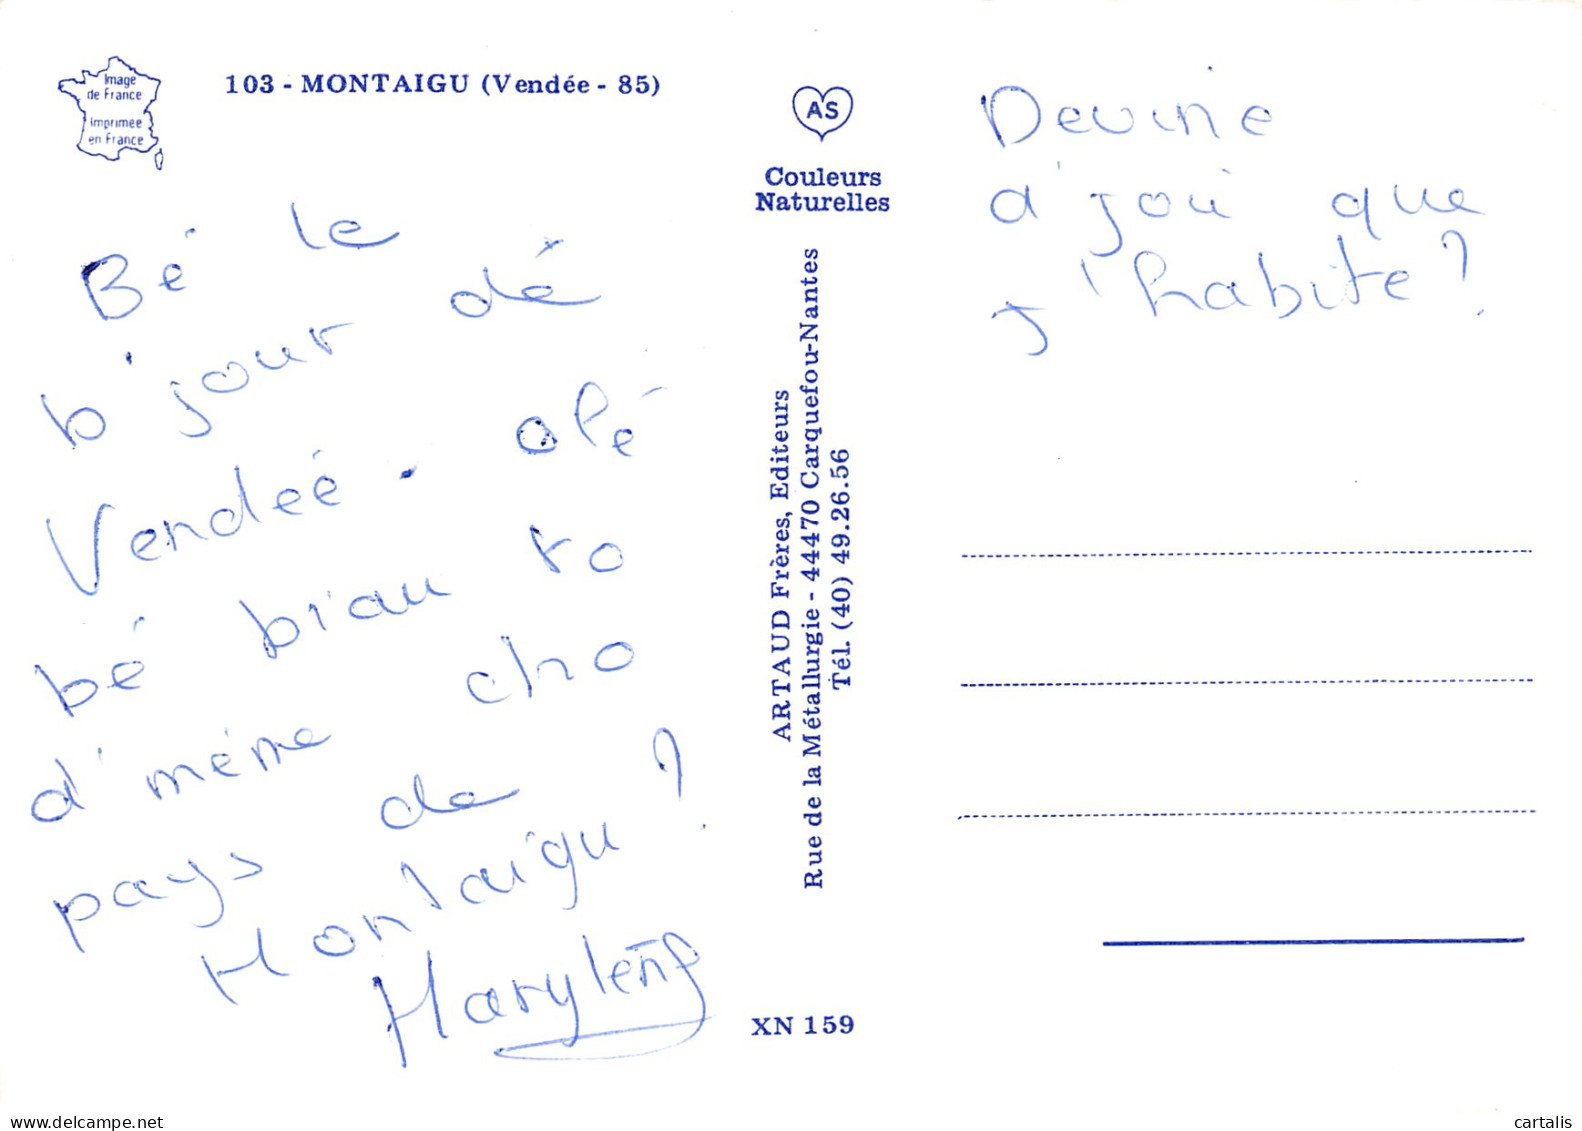 Image
de France
imprimée
en France
103 - MONTAIGU (Vendée - 85)
Bé le
b'jour dé
Vendeé. olé
bé biau to
d'méme cho
pays de
Montaigu ?
Marylène
AS
Couleurs
Naturelles
ARTAUD Frères, Editeurs
Rue de la Métallurgie - 44470 Carquefou-Nantes
Tél. (40) 49.26.56
XN 159
Devine
d'joui que
j'habite ?
www.delcampe.net
cartalis